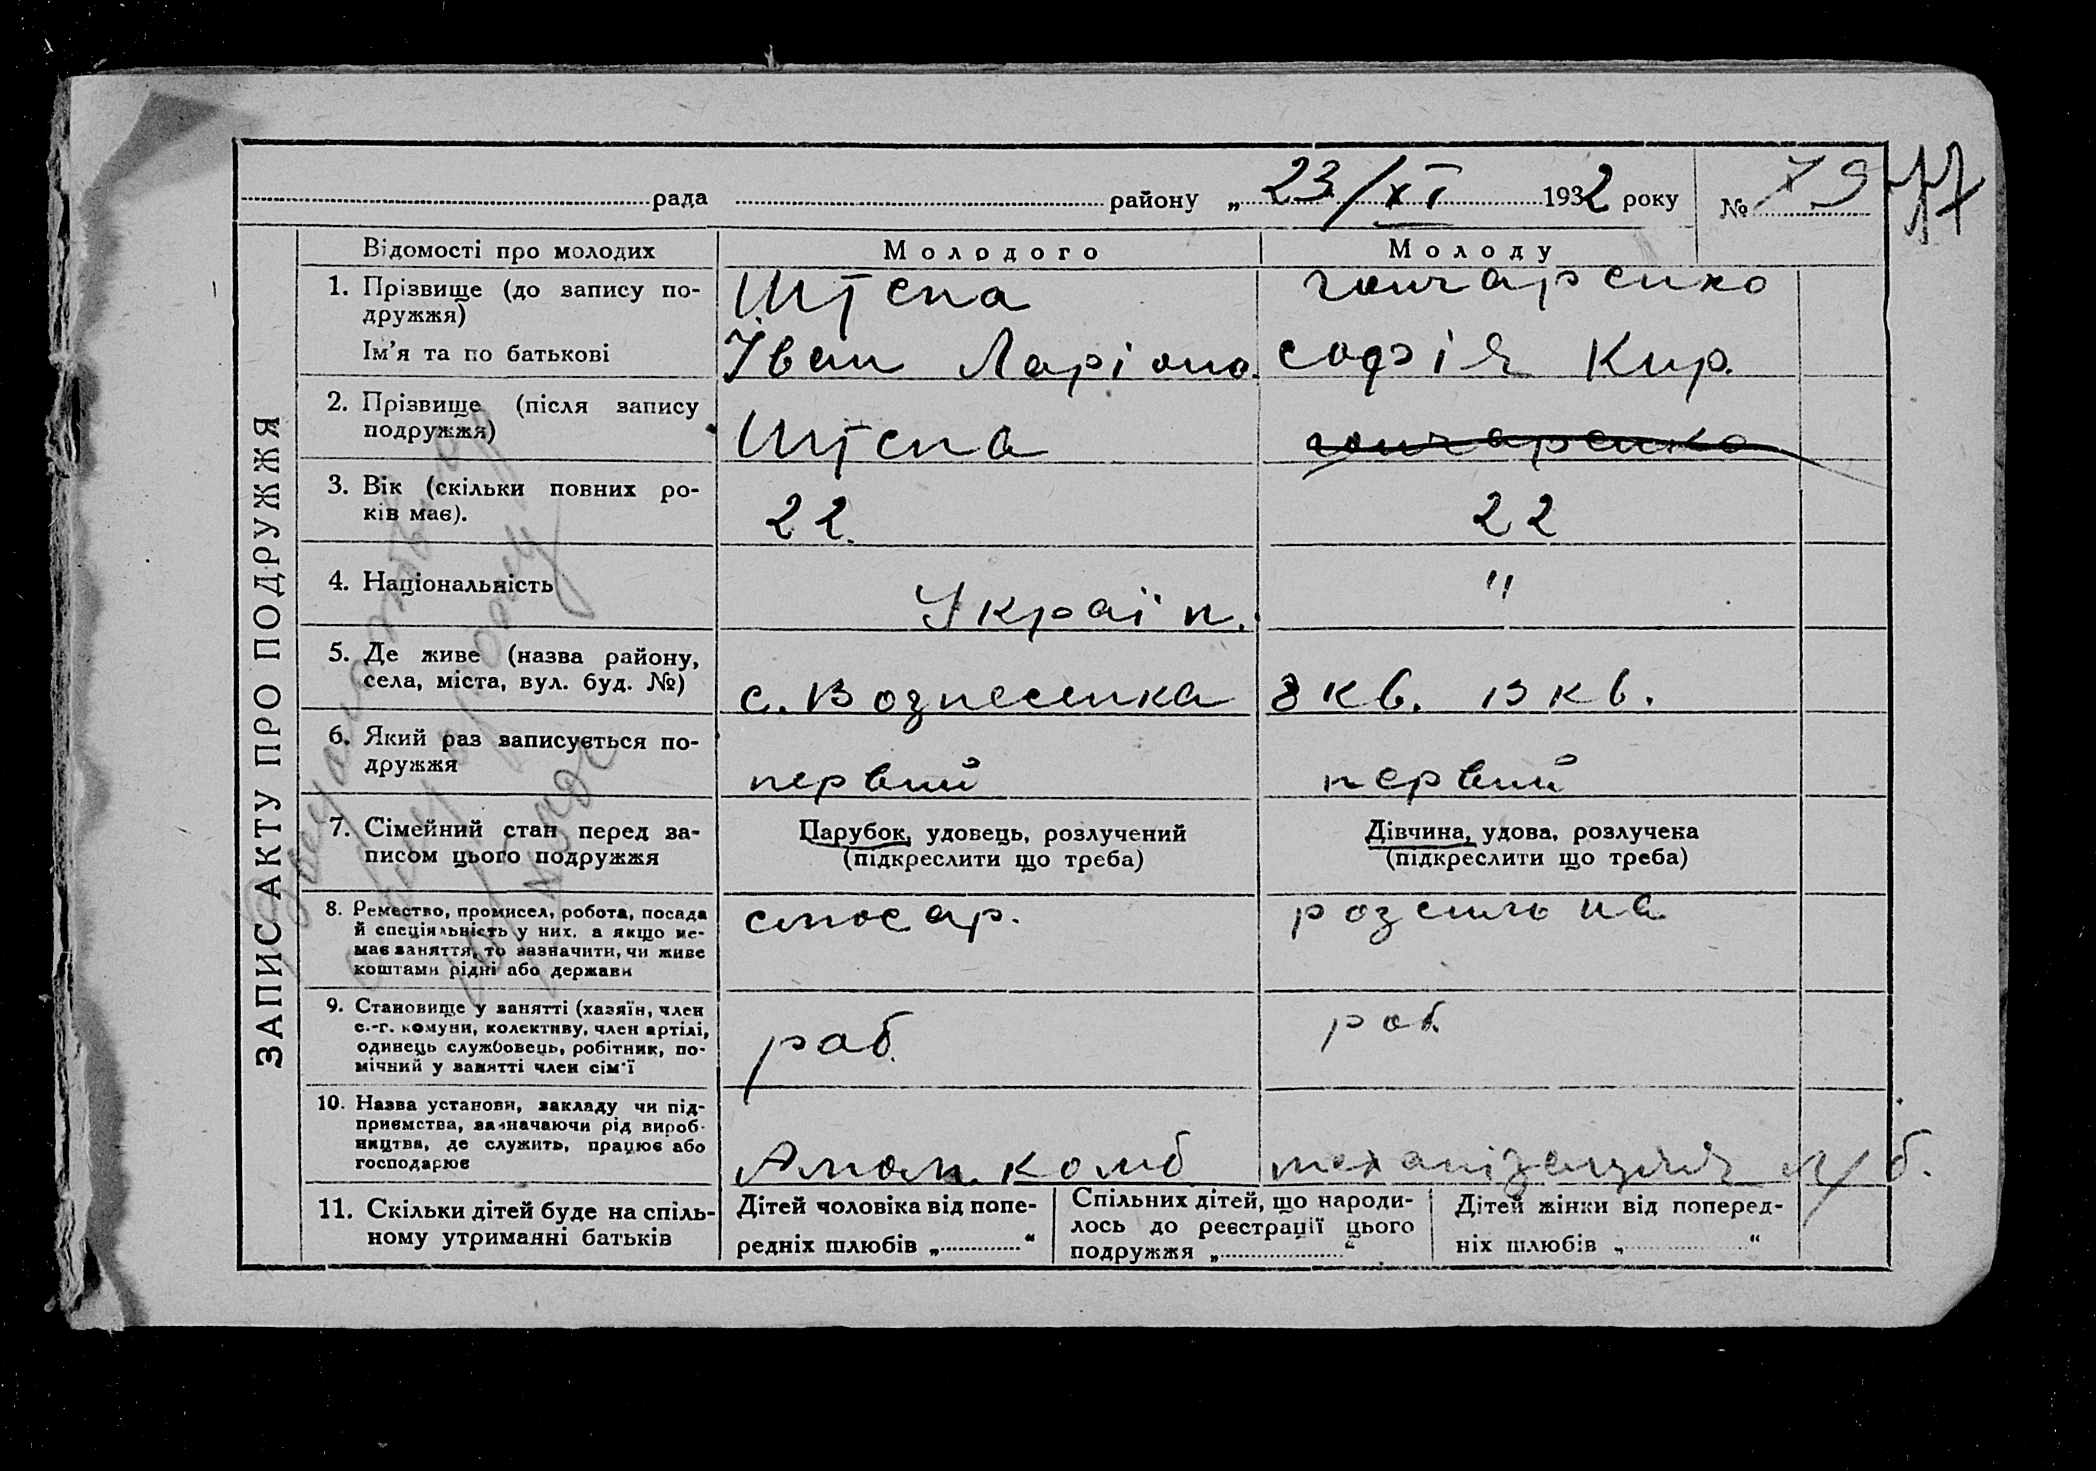 рада району „ 23/XI 1932 року № 79 77
ЗАПИС АКТУ ПРО ПОДРУЖЖЯ
Відомості про молодих Молодого Молоду
1. Прізвище (до запису по-
дружжя) Штепа гончаренко
Ім'я та по батькові Іван Ларіоно. софія Кир.
2. Прізвище (після запису
подружжя) Штепа гончаренко
3. Вік (скільки повних ро-
ків має). 22. 22
4. Національність Україн. "
5. Де живе (назва району,
села, міста, вул. буд. №) с. Вознесенка 8 кв. 13 кв.
6. Який раз записується по-
дружжя первий первий
7. Сімейний стан перед за-
писом цього подружжя
Парубок, удовець, розлучений
(підкреслити що треба)
Дівчина, удова, розлучена
(підкреслити що треба)
8. Ремество, промисел, робота, посада
й спеціяльність у них, а якщо не-
має заняття, то зазначити, чи живе
коштами рідні або держави
слюсар. розсильна
9. Становище у занятті (хазяїн, член
с.-г. комуни, колективу, член артілі,
одинець службовець, робітник, по-
мічний у занятті член сім'ї
раб. роб.
10. Назва установи, закладу чи під-
приємства, зазначаючи рід вироб-
ництва, де служить, працює або
господарює
Алюм. комб механізація
11. Скільки дітей буде на спіль-
ному утриманні батьків
Дітей чоловіка від попе-
редніх шлюбів „ “
Спільних дітей, що народи-
лось до реєстрації цього
подружжя „ “
Дітей жінки від поперед-
ніх шлюбів „ “